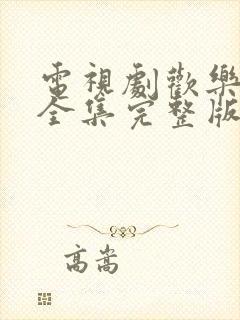 電視劇歡樂
全集完整版
高嵩